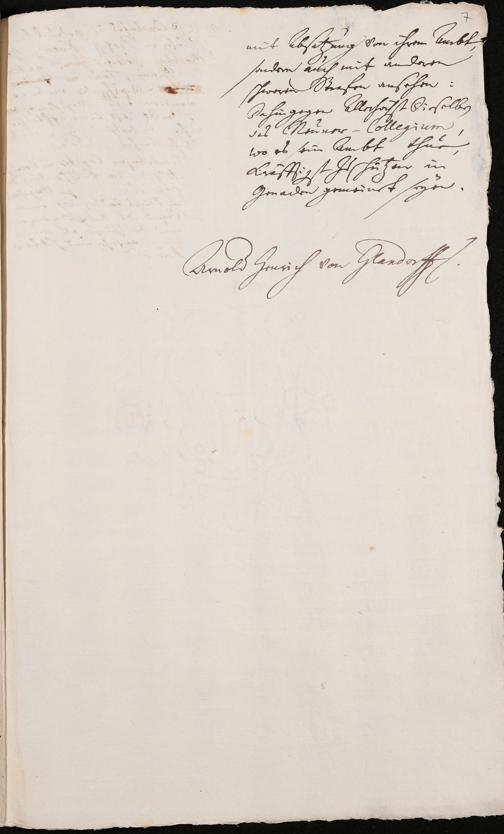 7
mit Absetzung von ihrem Ambt,
sondern auch mit anderen
schweren Strafen ansehen:
Dahingegen Allerhöchst Dieselbe
das Neuner-Collegium,
wo es sein Ambt thue,
kräfftigst zu schützen in
Gnaden gemeinet seyen.
Arnold Henrich von Glandorff